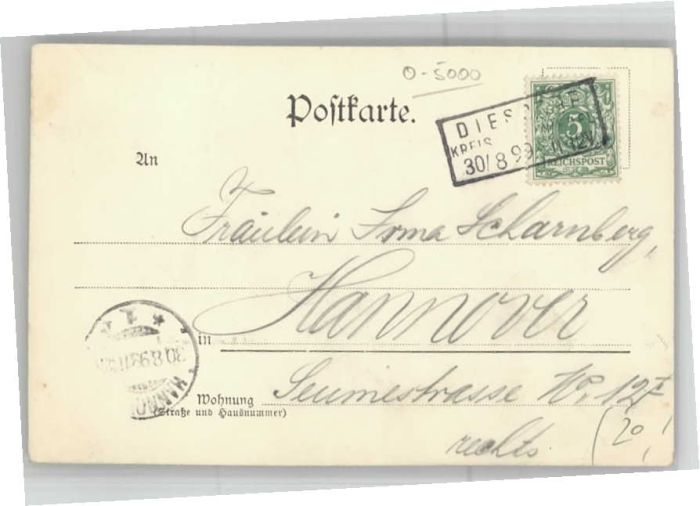 0-5000
Postkarte.
KREIS
30/8 99
5
REICHSPOST
An
Fräulein Irma Scharnberg,
in Hannover
30.8.99
HANNO
Wohnung Seumestrasse No. 12 I
(Straße und Hausnummer)
rechts.
(20)